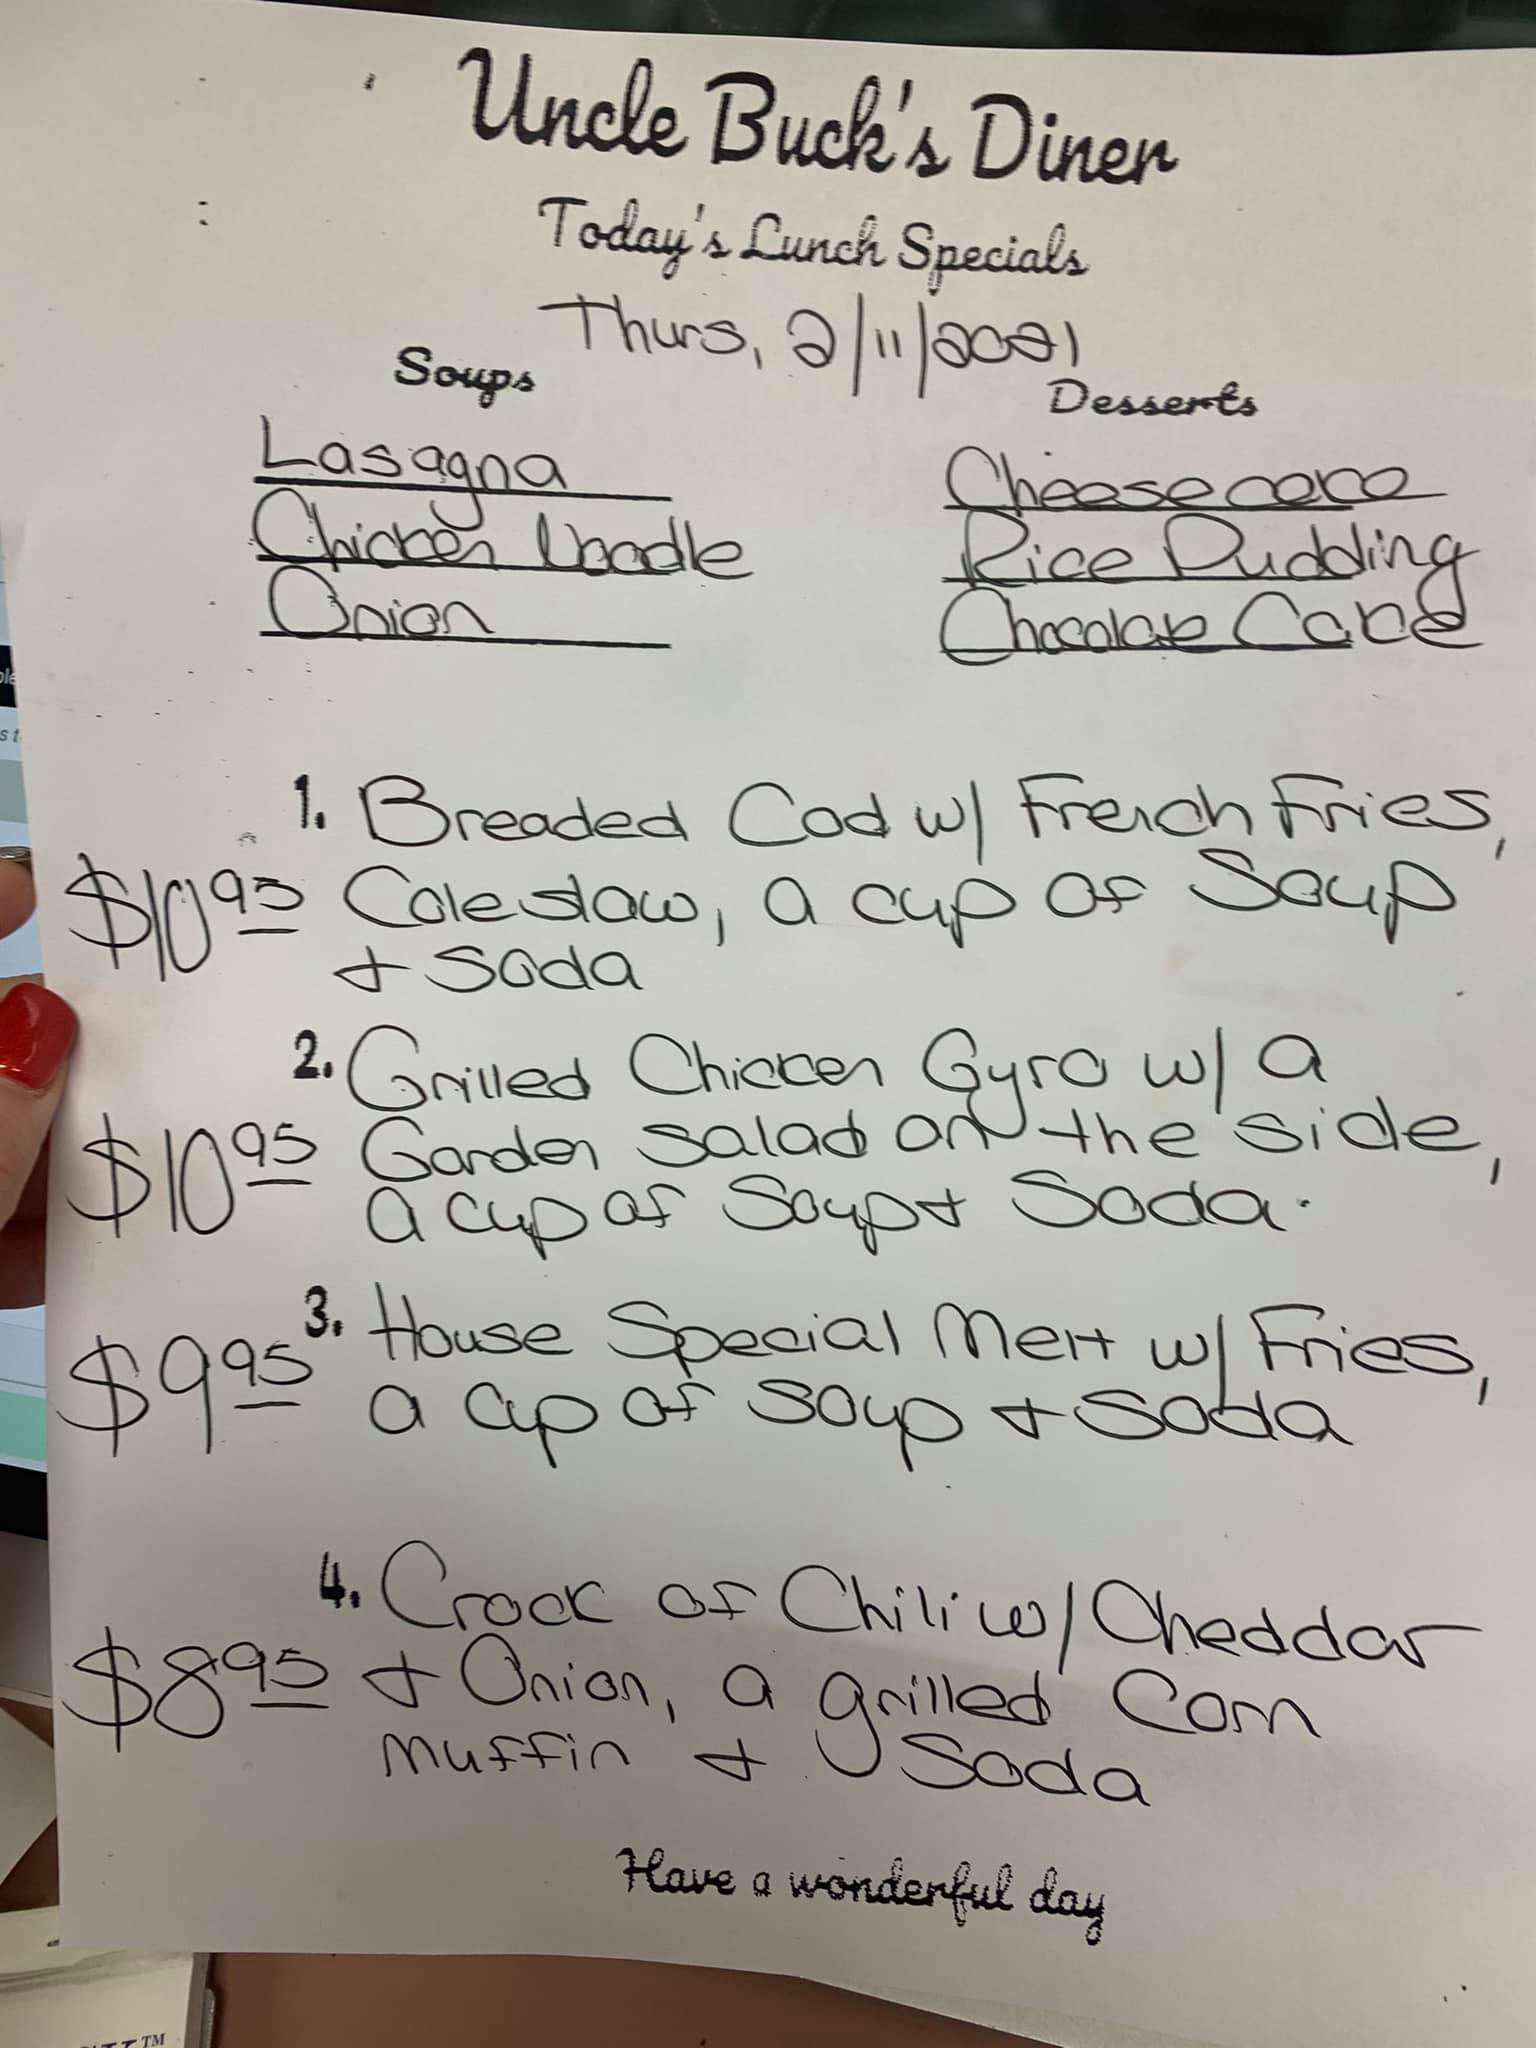 Uncle Buck's Diner
Today's Lunch Specials
Thurs, 2/11/2021
Soups
Lasagna
Chicken Noodle
Onion
Desserts
Cheesecake
Rice Pudding
Chocolate Cake
1. Breaded Cod w/ French Fries,
$10.95 Coleslaw, a cup of Soup
+ Soda
2. Grilled Chicken Gyro w/ a
$10.95 Garden Salad on the side,
a cup of Soup + Soda.
3. House Special Melt w/ Fries,
$9.95 a cup of Soup + Soda
4. Crock of Chili w/ Cheddar
$8.95 + Onion, a grilled Corn
Muffin + Soda
Have a wonderful day
TM